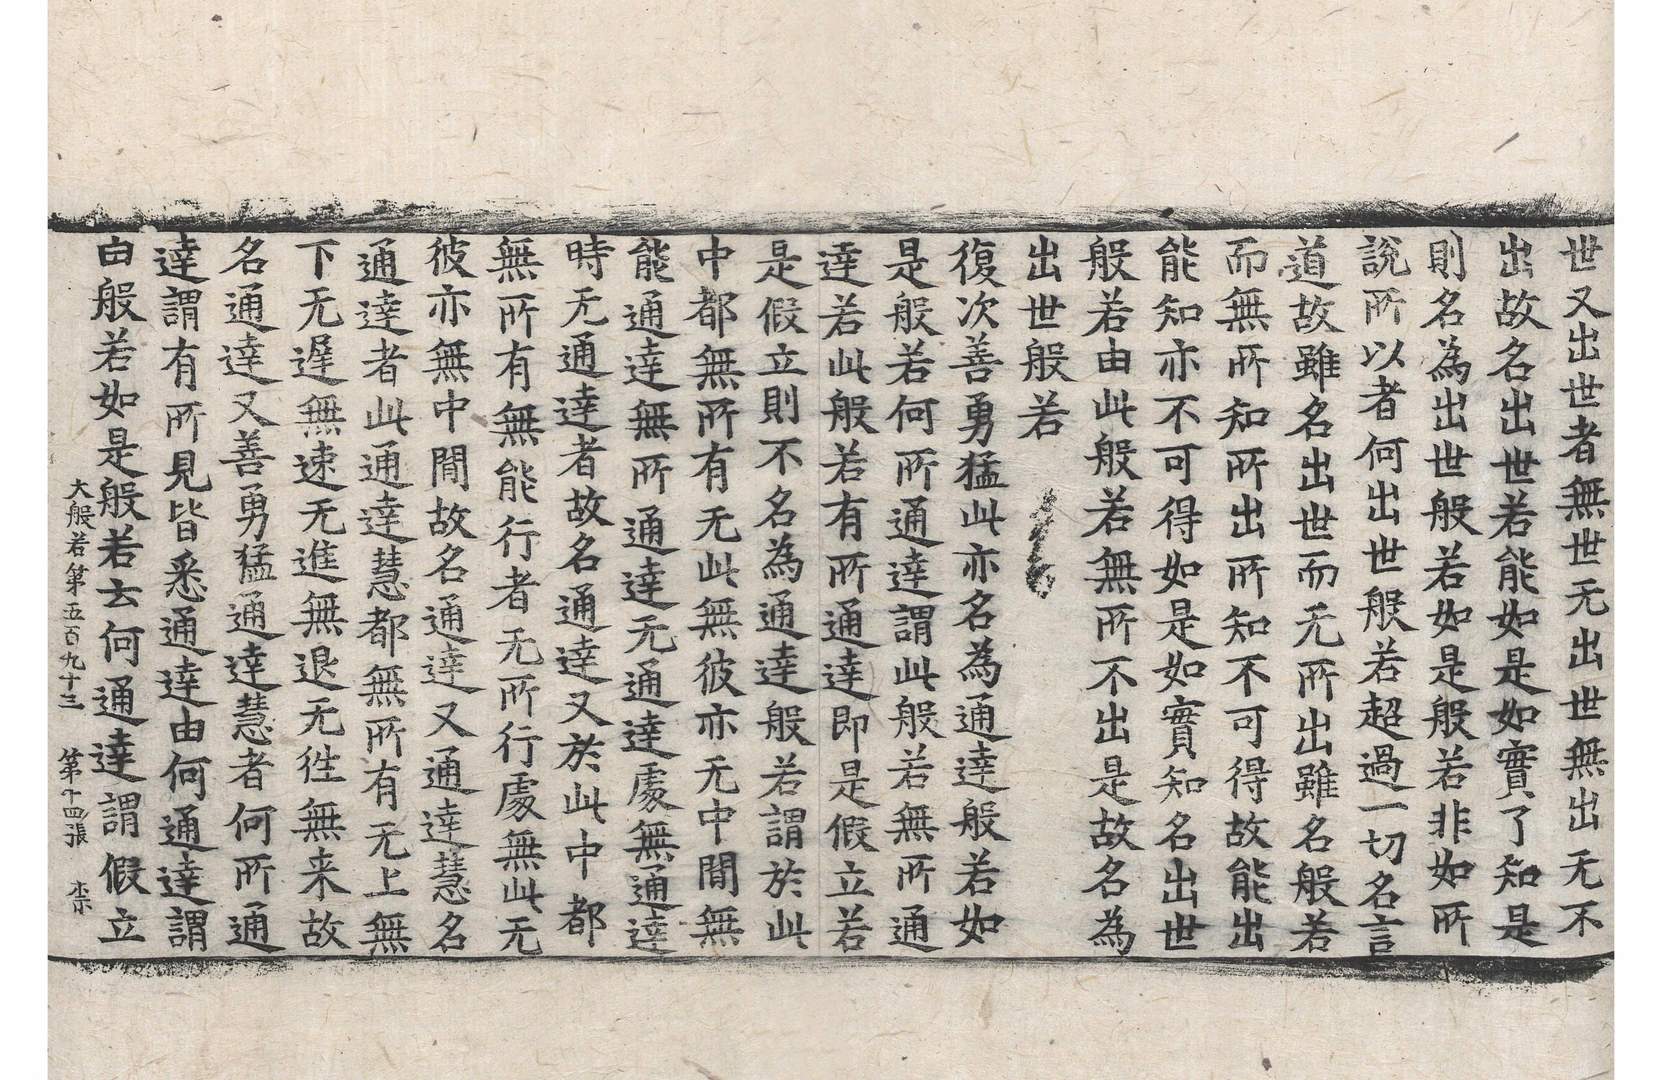 世又出世者無世无出世無出无不
出故名出世若能如是如實了知是
則名為出世般若如是般若非如所
說所以者何出世般若超過一切名言
道故雖名出世而无所出雖名般若
而無所知所出所知不可得故能出
能知亦不可得如是如實知名出世
般若由此般若無所不出是故名為
出世般若
復次善勇猛此亦名為通達般若如
是般若何所通達謂此般若無所通
達若此般若有所通達即是假立若
是假立則不名為通達般若謂於此
中都無所有无此無彼亦无中間無
能通達無所通達无通達處無通達
時无通達者故名通達又於此中都
無所有無能行者无所行處無此无
彼亦無中間故名通達又通達慧名
通達者此通達慧都無所有无上無
下无遲無速无進無退无徃無来故
名通達又善勇猛通達慧者何所通
達謂有所見皆悉通達由何通達謂
由般若如是般若云何通達謂假立
大般若第五百九十三 第十四張 柰